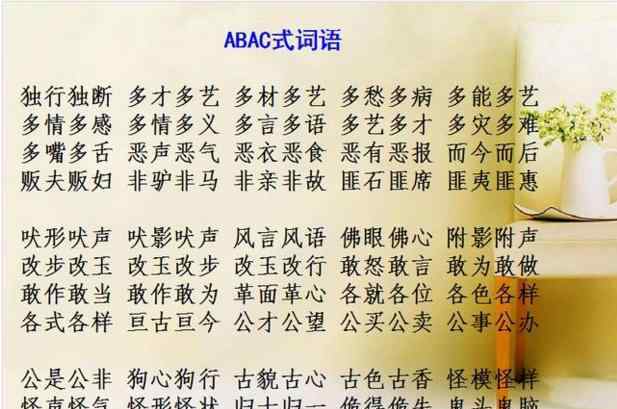 ABAC式词语
独行独断 多才多艺 多材多艺 多愁多病 多能多艺
多情多感 多情多义 多言多语 多艺多才 多灾多难
多嘴多舌 恶声恶气 恶衣恶食 恶有恶报 而今而后
贩夫贩妇 非驴非马 非亲非故 匪石匪席 匪夷匪惠
吠形吠声 吠影吠声 风言风语 佛眼佛心 附影附声
改步改玉 改玉改步 改玉改行 敢怒敢言 敢为敢做
敢作敢当 敢作敢为 革面革心 各就各位 各色各样
各式各样 亘古亘今 公才公望 公买公卖 公事公办
公是公非 狗心狗行 古貌古心 古色古香 怪模怪样
怪声怪气 怪形怪状 归十归一 鬼头鬼脑